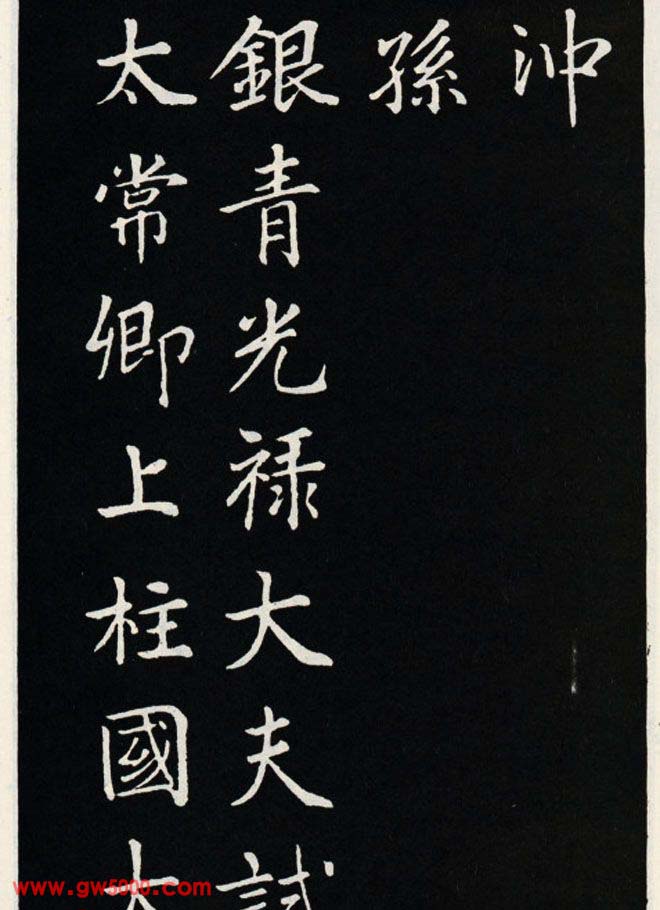 沖
孫
銀青光禄大夫試
太常卿上柱國
www.gw5000.com